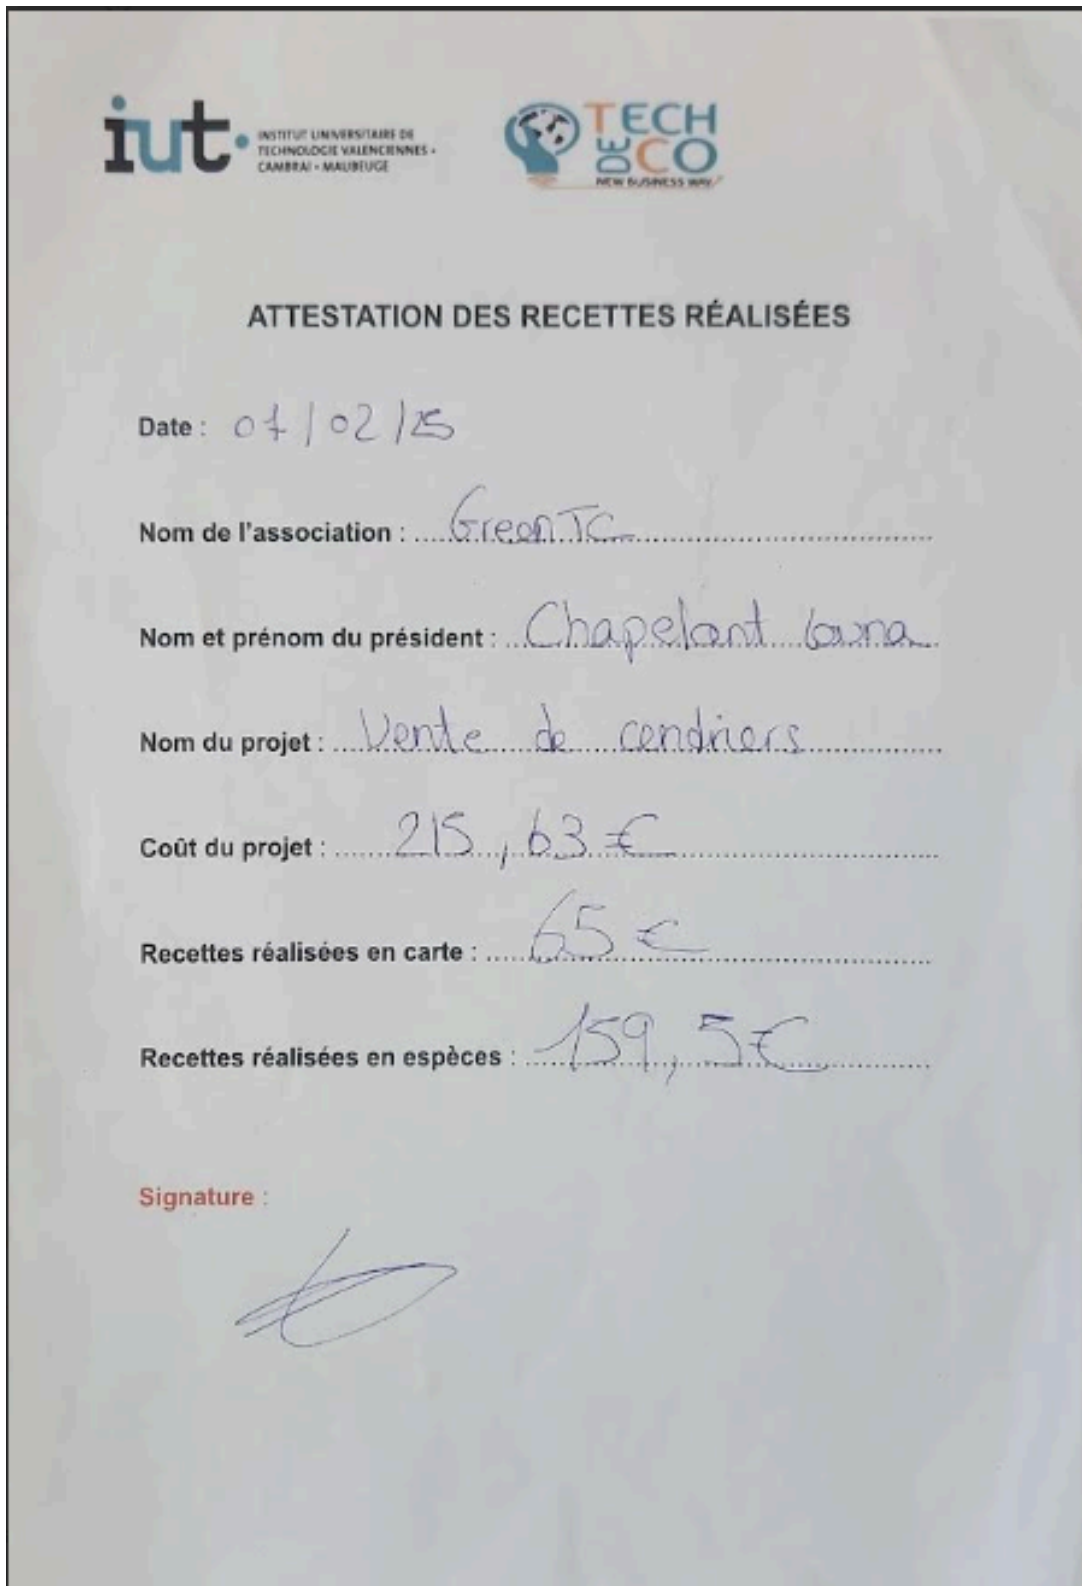 iut. INSTITUT UNIVERSITAIRE DE
TECHNOLOGIE VALENCIENNES •
CAMBRAI • MAUBEUGE
TECH
DE CO
NEW BUSINESS WAY
ATTESTATION DES RECETTES RÉALISÉES
Date : 07/02/25
Nom de l'association : GreenTC
Nom et prénom du président : Chapelant
Nom du projet : Vente de cendriers
Coût du projet : 215,63€
Recettes réalisées en carte : 65€
Recettes réalisées en espèces : 159,5€
Signature :